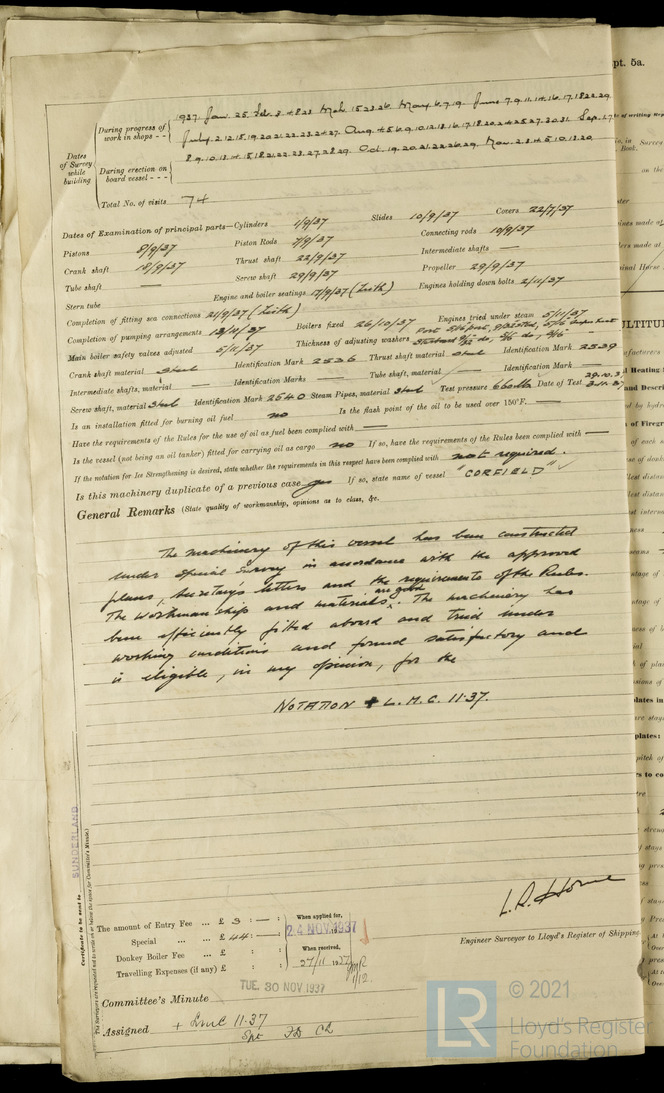 pt. 5a.
Dates of Survey while building
During progress of work in shops - -
1937 Jan. 25 Feb. 3 4 8 23 Mch 15 23 26 May 6. 7. 19. June 7. 9. 11. 14. 16. 17. 18 22. 29
July 2. 12 15. 19. 20 21. 22. 23. 24 27. Aug 4 5 6. 9. 10. 12. 13. 16. 17. 18 20. 24 25 27. 30 31. Sep.
8. 9. 10. 13. 15. 18 21. 22. 23. 27. 28 29. Oct. 19. 20. 21. 22. 26. 29. Nov. 2. 3. 4 5. 10. 13. 20
During erection on board vessel - - -
Total No. of visits 74
Dates of Examination of principal parts—Cylinders 1/9/37 Slides 10/9/37 Covers 22/7/37
Pistons 8/9/37 Piston Rods 7/9/37 Connecting rods 10/9/37
Crank shaft 18/9/37 Thrust shaft 22/9/37 Intermediate shafts —
Tube shaft — Screw shaft 29/9/37 Propeller 29/9/37
Stern tube Engine and boiler seatings 17/9/37 (Leith) Engines holding down bolts 2/11/37
Completion of fitting sea connections 21/9/37 (Leith)
Completion of pumping arrangements 13/11/37 Boilers fixed 26/10/37 Engines tried under steam 5/11/37
Main boiler safety valves adjusted 5/11/37 Thickness of adjusting washers
Crank shaft material Steel Identification Mark 2536 Thrust shaft material Steel Identification Mark 2539
Intermediate shafts, material — Identification Marks — Tube shaft, material — Identification Mark —
Screw shaft, material Steel Identification Mark 2540 Steam Pipes, material Steel Test pressure 660 lbs Date of Test 29.10.37
Is an installation fitted for burning oil fuel no Is the flash point of the oil to be used over 150°F. —
Have the requirements of the Rules for the use of oil as fuel been complied with —
Is the vessel (not being an oil tanker) fitted for carrying oil as cargo no If so, have the requirements of the Rules been complied with —
If the notation for Ice Strengthening is desired, state whether the requirements in this respect have been complied with not required.
Is this machinery duplicate of a previous case yes If so, state name of vessel "CORFIELD"
General Remarks (State quality of workmanship, opinions as to class, &c.
The machinery of this vessel has been constructed
under Special Survey in accordance with the approved
plans, Secretary's letters and the requirements of the Rules.
The workmanship and materials are good. The machinery has
been efficiently fitted aboard and tried under
working conditions and found satisfactory and
is eligible, in my opinion, for the
NOTATION + L.M.C. 11.37.
SUNDERLAND
Certificate to be sent to
(The Surveyors are requested not to write on or below the space for Committee's Minute.)
The amount of Entry Fee ... £ 3 : — :
Special ... ... £ 44 : — :
Donkey Boiler Fee ... £ : :
Travelling Expenses (if any) £ : :
When applied for,
24 NOV 1937
When received,
27/11 1937
1/12.
L. R. Horne
Engineer Surveyor to Lloyd's Register of Shipping
TUE. 30 NOV 1937
Committee's Minute
Assigned + LMC 11.37
Spt FD CL
LR
© 2021
Lloyd's Register
Foundation